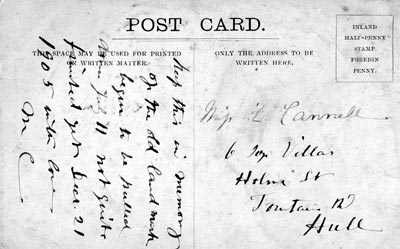 POST CARD.
THIS SPACE MAY BE USED FOR PRINTED
OR WRITTEN MATTER.
Keep this in memory
of the old landmark
began to be pulled
down July 11 not quite
finished yet Decr. 21
1905 with love
M C
ONLY THE ADDRESS TO BE
WRITTEN HERE.
INLAND
HALF-PENNY
STAMP.
FOREIGN
PENNY.
Miss Cannell
6 Villas
St
Fountain Rd
Hull